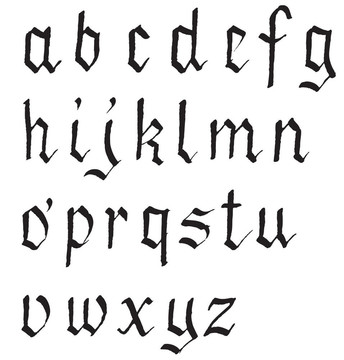 a b c d e f g
h i j k l m n
o p r q s t u
v w x y z